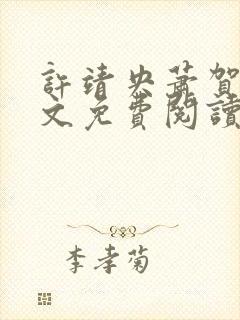 許靖央蕭賀
文免費閱讀
李孝菊